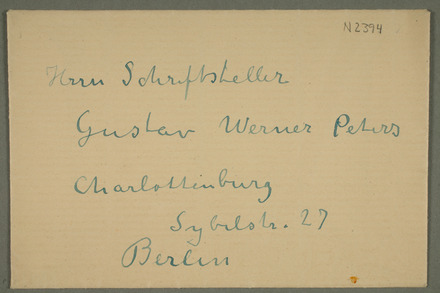 N2394
Herrn Schriftsteller
Gustav Werner Peters
Charlottenburg
Sybelstr. 27
Berlin